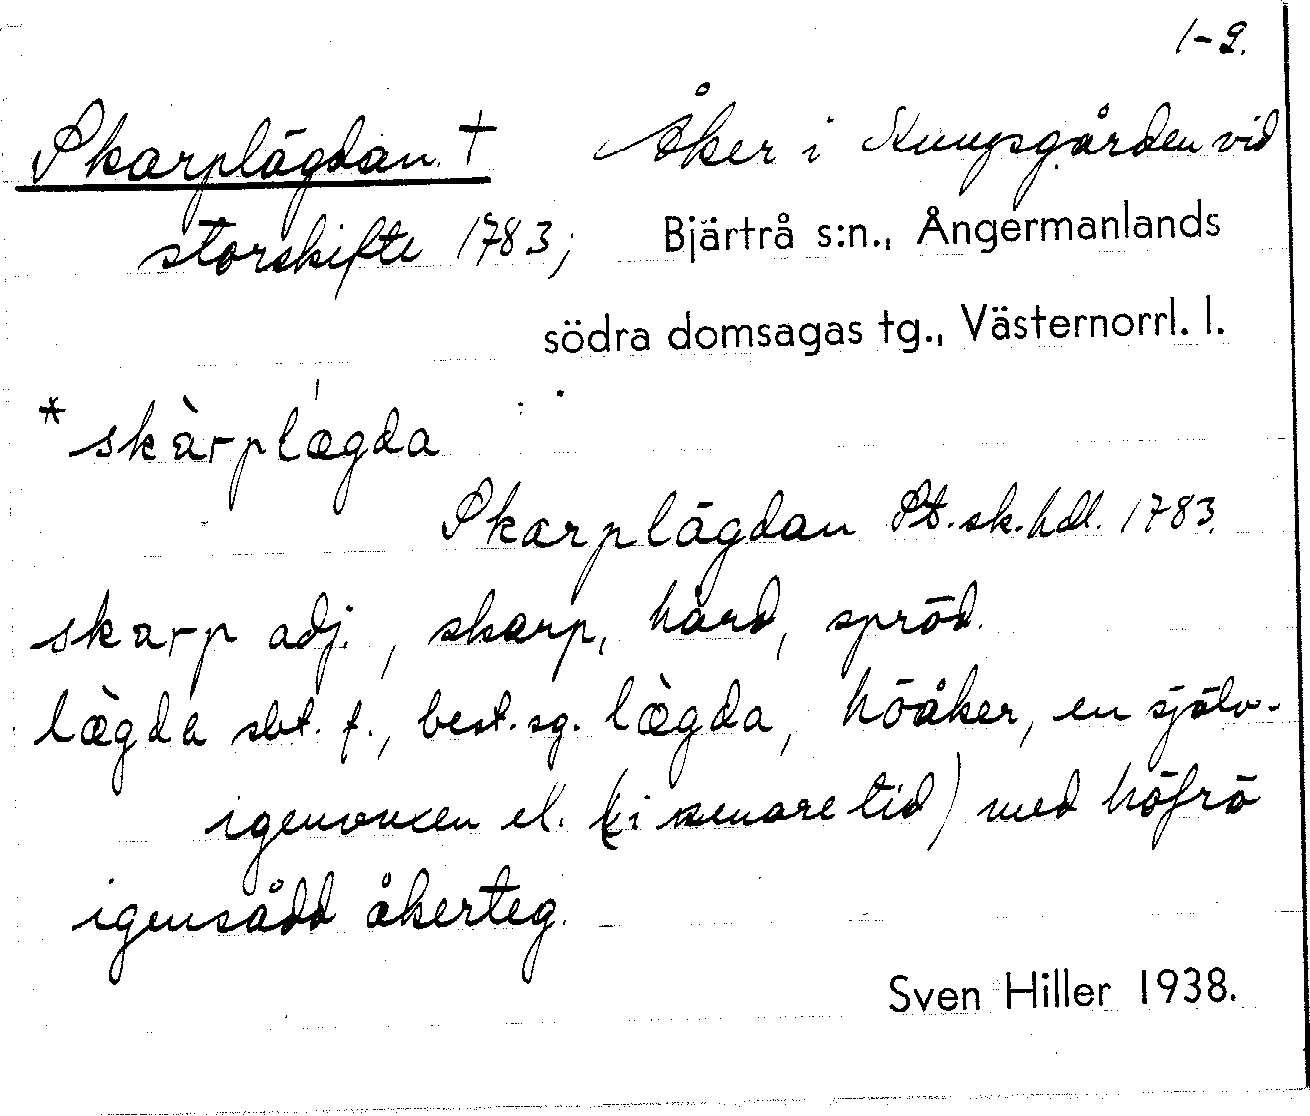 1-2.
Skarplägdan † Åker i Kungsgården vid
storskifte 1783; Bjärtrå s:n., Ångermanlands
södra domsagas tg., Västernorrl. l.
* skàrplægda
Skarplägdan St.sk.hdl. 1783.
skarp adj., skarp, hård, spröd.
lægda sbt. f., best. sg. lægda, höåker, en själv-
igenvuxen el. (i senare tid) med höfrö
igensådd åkerteg.
Sven Hiller 1938.